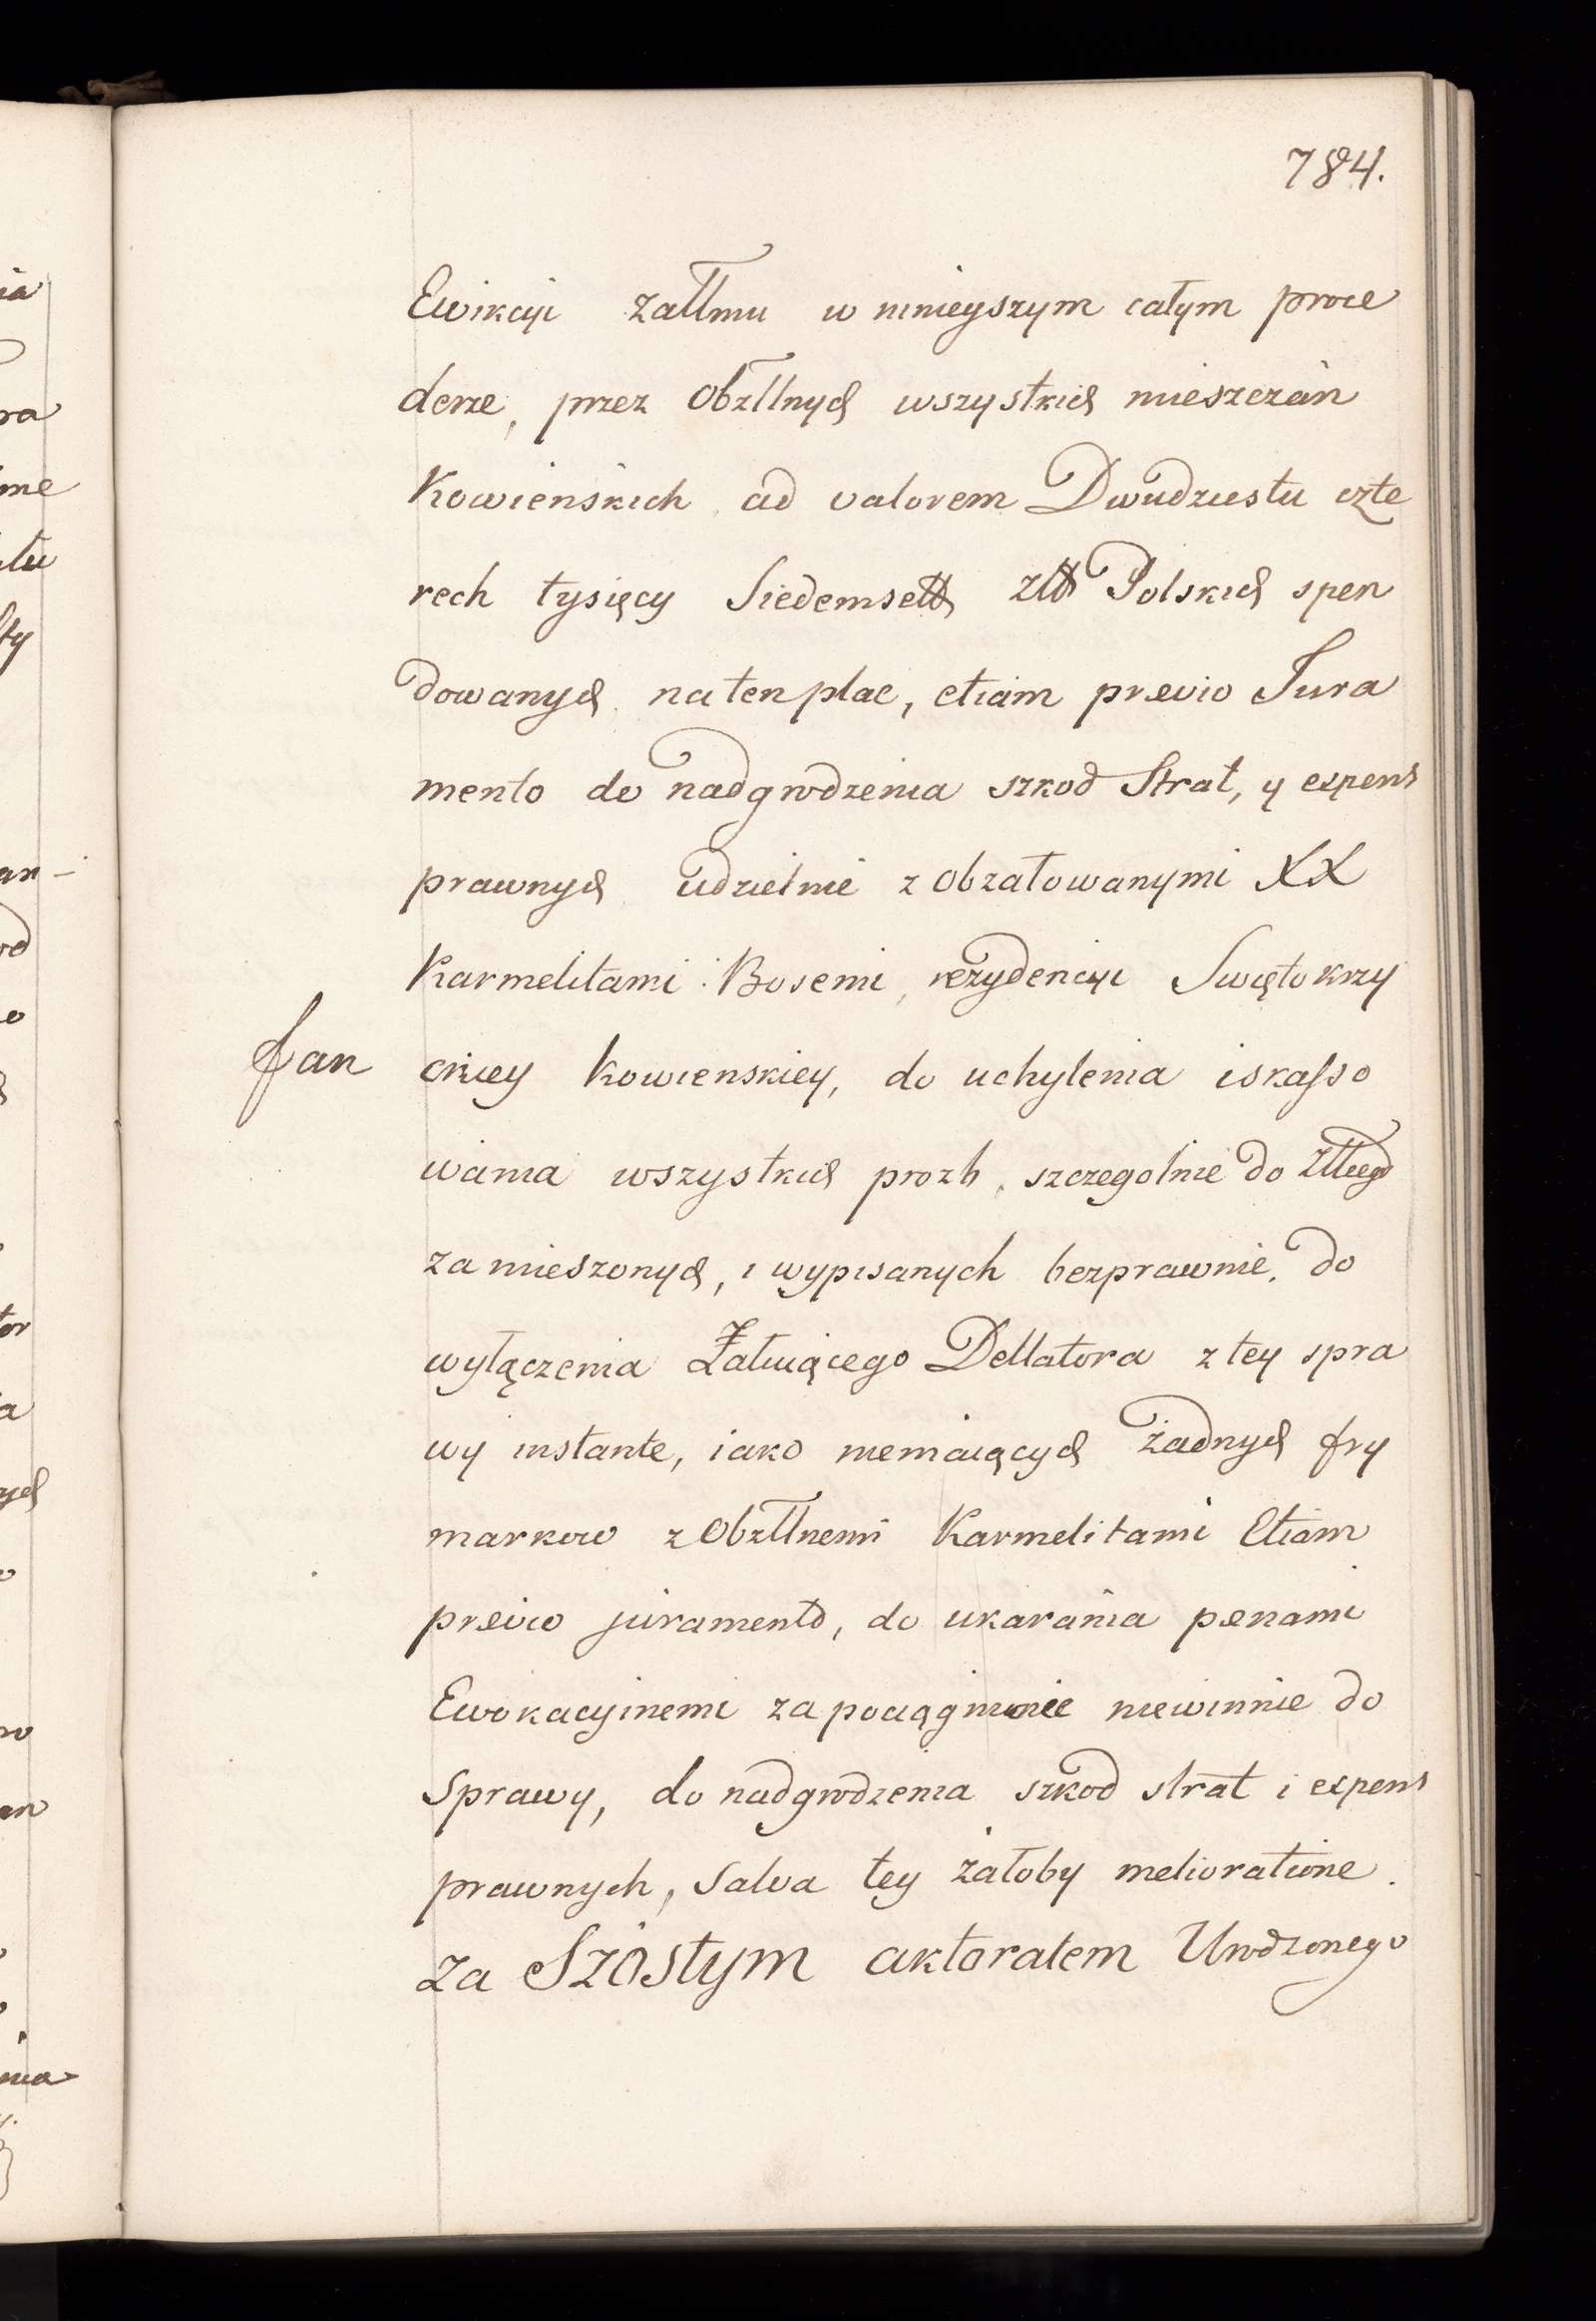 784.
Ewikcyi załłmu w ninieyszym całym proce
derze, przez Obżłłnych wszystkich mieszczan
Kowieńskich ad valorem Dwudziestu czte
rech tysięcy Siedemsett złł Polskich spen
dowanych na ten plac, etiam prævio Jura
mento do nadgrodzenia szkod Strat, y expens
prawnych udzielnie z obżałowanymi XX
Karmelitami Bosemi, rezydencyi Swięto krzy
fan
ckiey Kowienskiey, do uchylenia i skasso
wania wszystkich prozb, szczegolnie do żłłcego
zamieszonych, i wypisanych bezprawnie, do
wyłączenia Żałuiącego Dellatora z tey spra
wy instante, iako niemaiących żadnych fry
markow z Obżłłnemi Karmelitami Etiam
prævio juramento, do ukarania pænami
Ewokacyinemi za pociągnienie niewinnie do
Sprawy, do nadgrodzenia szkod strat i expens
prawnych, Salva tey żałoby melioratione.
Za Szóstym aktoratem Urodzonego